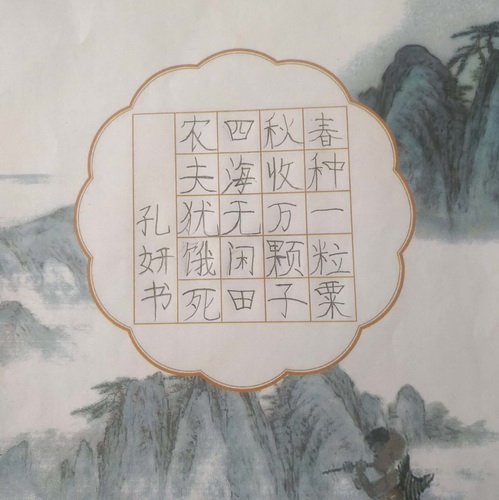 春种一粒粟
秋收万颗子
四海无闲田
农夫犹饿死
孔妍书